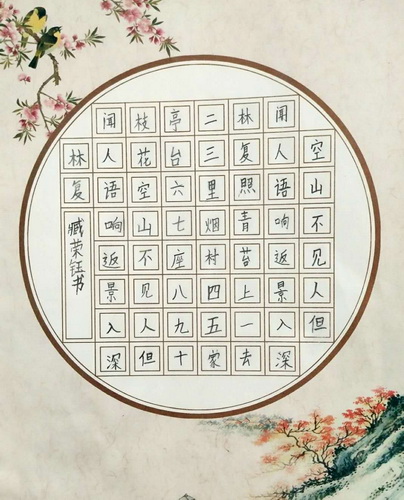 空山不见人但
闻人语响返景入深
林复照青苔上一去
二三里烟村四五家
亭台六七座八九十
枝花空山不见人但
闻人语响返景入深
林复
臧荣钰书